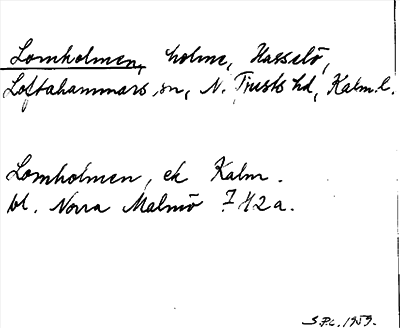 Lomholmen, holme, Hasselö,
Loftahammars sn, N. Tjusts hd, Kalm. l.
Lomholmen, ek Kalm.
bl. Norra Malmö 7 42a.
S.P.L. 1959.